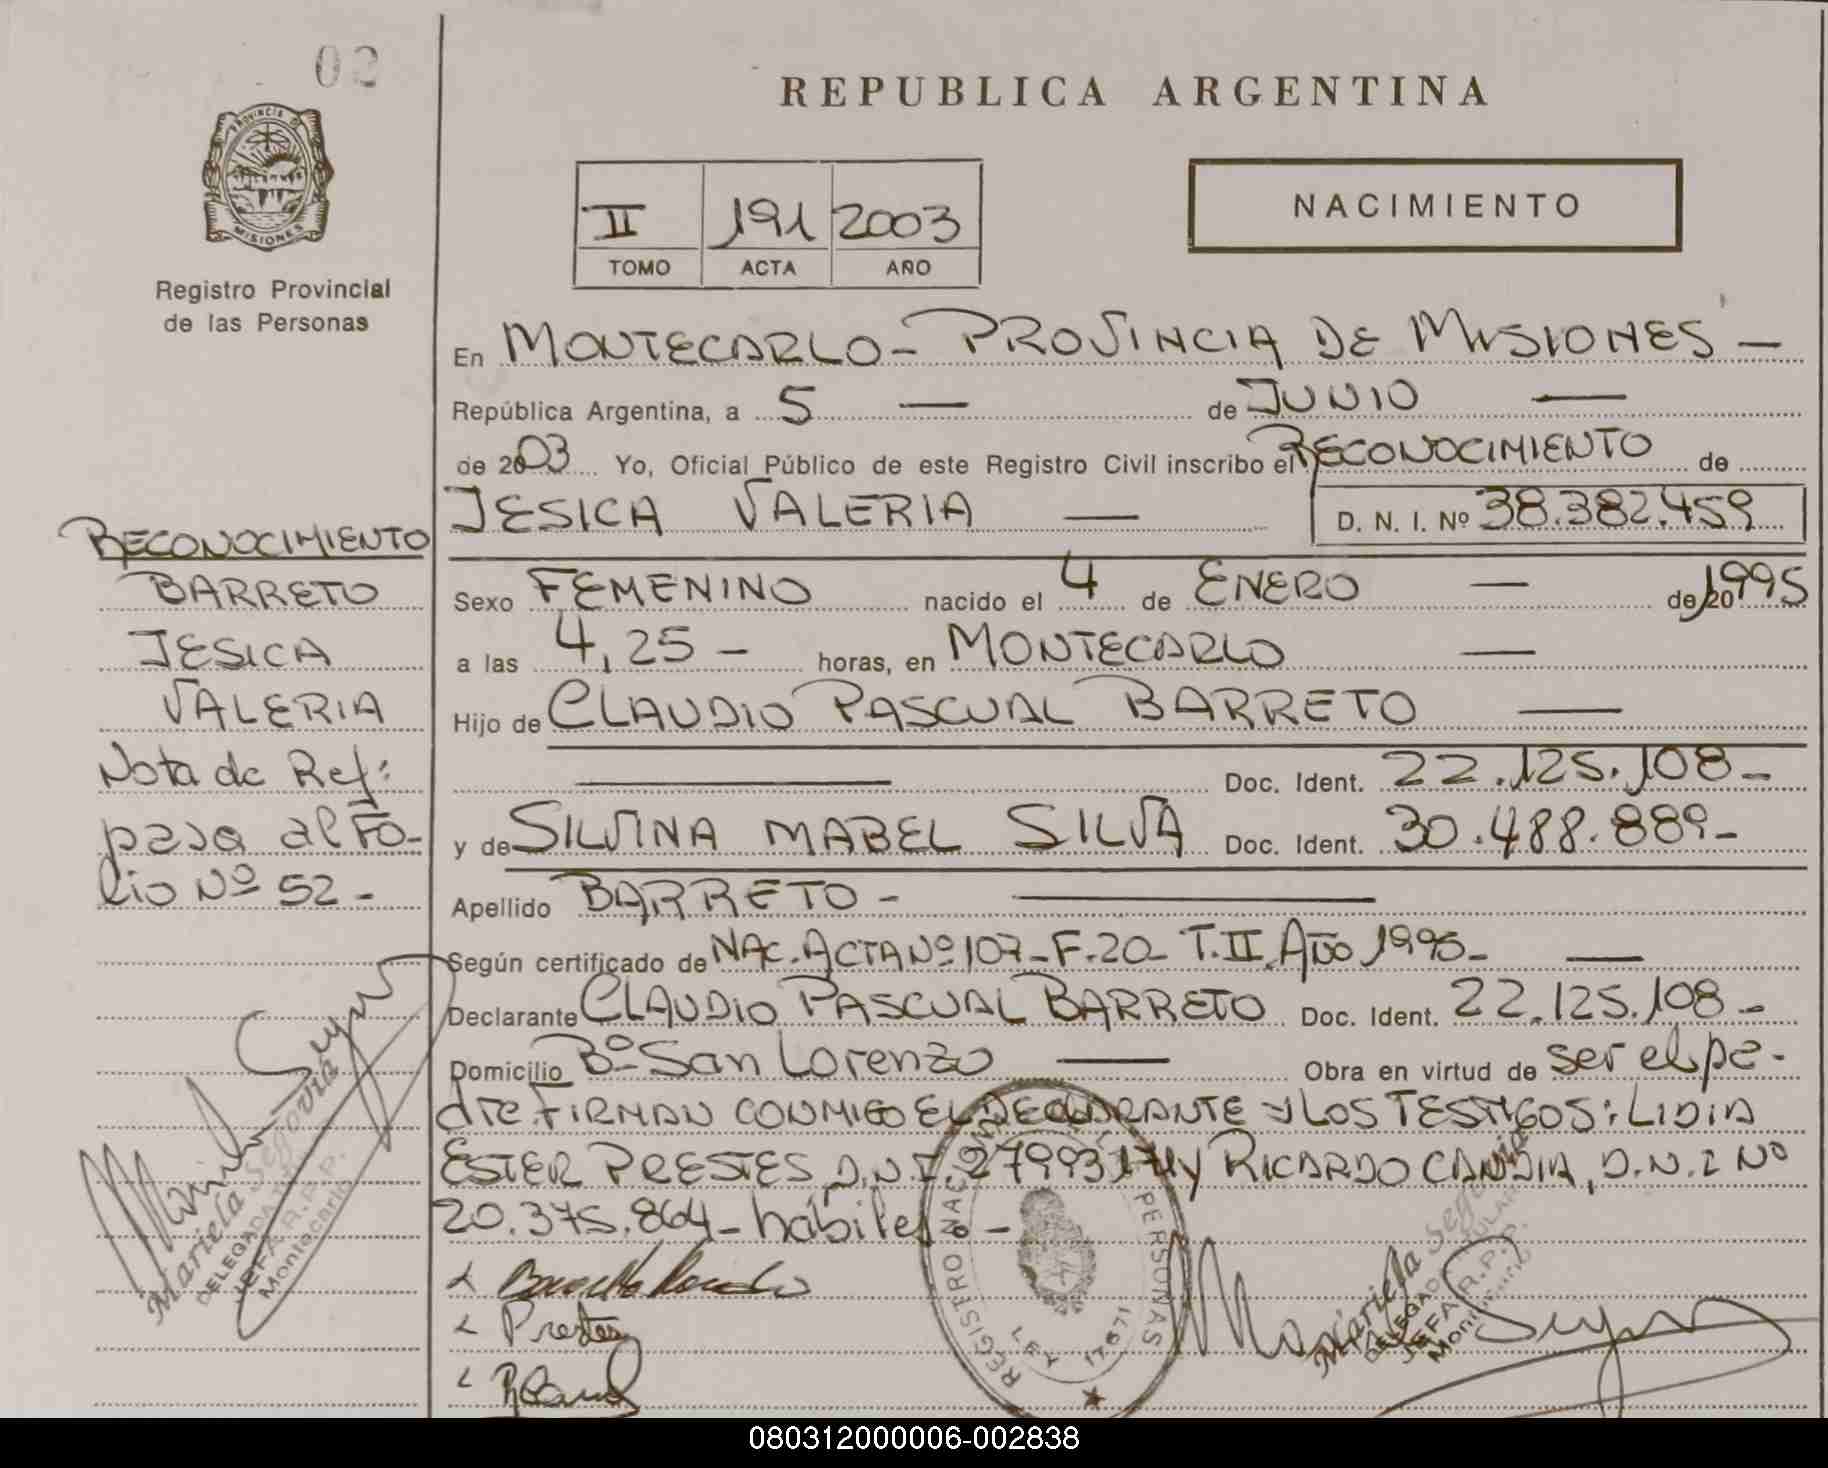 02
REPUBLICA ARGENTINA
PROVINCIA DE
MISIONES
Registro Provincial
de las Personas
II 191 2003
TOMO ACTA AÑO
NACIMIENTO
En MONTECARLO - PROVINCIA DE MISIONES -
República Argentina, a 5 — de JUNIO —
de 2003 Yo, Oficial Público de este Registro Civil inscribo el RECONOCIMIENTO de
JESICA VALERIA — D. N. I. Nº 38.382.459
Sexo FEMENINO nacido el 4 de ENERO — de 20 1995
a las 4,25 - horas, en MONTECARLO —
Hijo de CLAUDIO PASCUAL BARRETO —
— Doc. Ident. 22.125.108-
y de SILVINA MABEL SILVA Doc. Ident. 30.488.889-
Apellido BARRETO - —
Según certificado de NAC. ACTA Nº 107-F.20- T.II. AÑO 1995- —
Declarante CLAUDIO PASCUAL BARRETO Doc. Ident. 22.125.108-
Domicilio Bº San Lorenzo — Obra en virtud de ser el pa-
dre. FIRMAN CONMIGO EL DECLARANTE y LOS TESTIGOS: LIDIA
ESTER PRESTES, D.N.I. 27993174 y RICARDO CANDIA, D.N.I Nº
20.375.864- hábiles -
Prestes
RECONOCIMIENTO
BARRETO
JESICA
VALERIA
Nota de Ref:
pasa al Fo-
lio Nº 52-
Mariela Segovia
DELEGADA
JEFA R.P.P.
Montecarlo
REGISTRO NACIONAL PERSONAS
LEY 17671
Mariela Segovia
DELEGADA TITULAR
JEFA R.P.P.
080312000006-002838